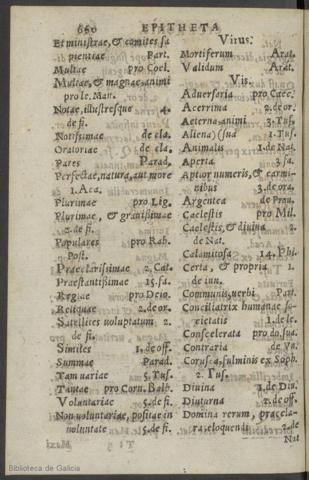 660 EPITHETA
Et ministrae, & comites sa
pientiae Part.
Multae pro Coel.
Multae, & magnae, animi
pro le. Man.
Notae, illustresque 4.
de fi.
Notissimae de cla.
Oratoriae de cla.
Pares Parad.
Perfectae, natura, aut more
1. Aca.
Plurimae pro Lig.
Plurimae, & grauissimae
2. de fi.
Populares pro Rab.
Post.
Praeclarissimae 2. Cat.
Praestantissimae 15. fa.
Regiae pro Deio.
Reliquae 2. de or.
Satellites voluptatum 2.
de fi.
Similes 1. de off.
Summae Parad.
Tam variae 5. Tus.
Tantae pro Corn. Balb.
Voluntariae 5. de fi.
Non voluntariae, positae in
voluntate 5. de fi.
Virus.
Mortiferum Arat.
Validum Arat.
Vis.
Aduersaria pro Caec.
Acerrima 2. de or.
Aeterna, animi 3. Tus.
Aliena) (sua 1. Tus.
Animalis 1. de Nat.
Aperta 3. fa.
Aptior numeris, & carmi-
nibus 3. de ora.
Argentea de Prou.
Caelestis pro Mil.
Caelestis, & diuina 2.
de Nat.
Calamitosa 14. Phi.
Certa, & propria 1.
de inu.
Communis, verbi Part.
Conciliatrix humanae so-
cietatis 1. de le.
Conscelerata pro do. sua.
Contraria de Vn.
Corusca, fulminis ex Soph.
2. Tus.
Diuina 1. de Diu.
Diuturna 2. de off.
Domina rerum, praecla-
ra, eloquendi 2. de
Nat
Biblioteca de Galicia